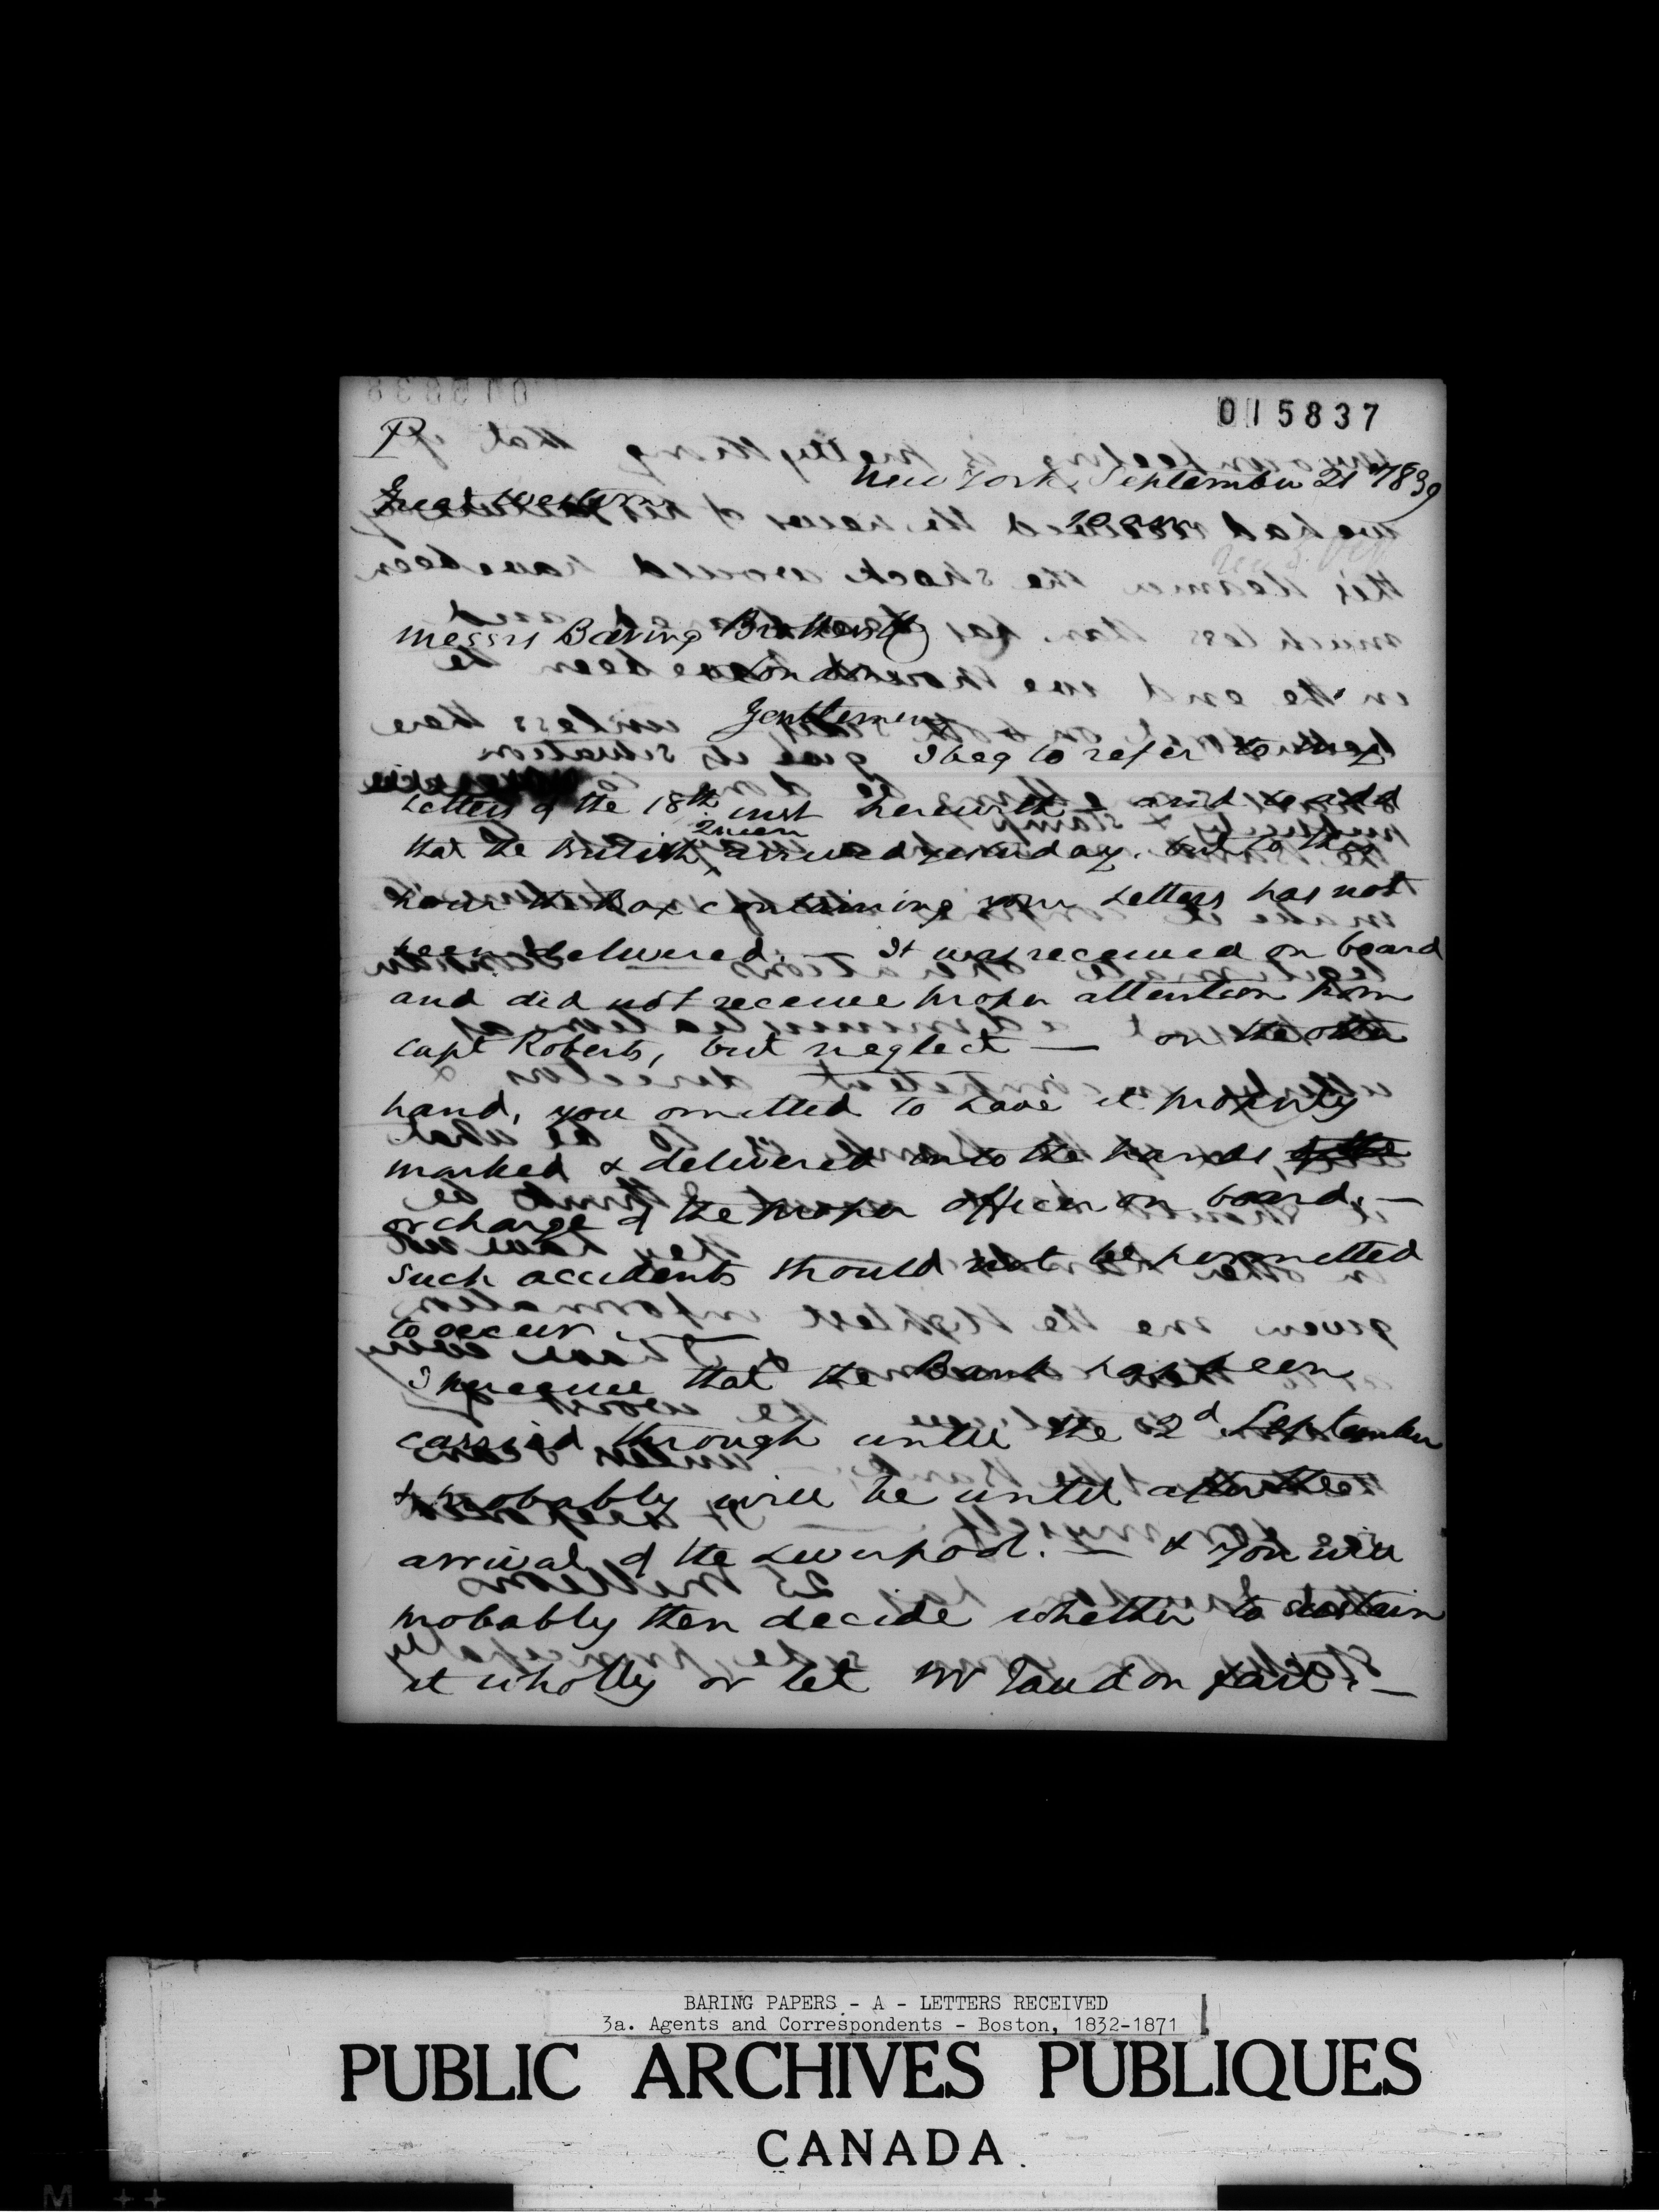 015837
P
New York, September 21st 1839
Great Western
10 am
Messrs Baring Brothers & Co
London
Gentlemen
I beg to refer to my
Letters of the 18th inst herewith and to add
that the British Queen arrived yesterday. but to this
hour the Box containing your Letters has not
been delivered. — It was received on board
and did not receive proper attention from
Capt Roberts, but neglect — on the other
hand, you omitted to have it properly
marked & delivered into the hands of the
or charge of the proper officer on board. —
Such accidents should not be permitted
to occur. —
I perceive that the Bank has been
carried through until the 2d September
& probably will be until after the
arrival of the Liverpool. — & you will
probably then decide whether to sustain
it wholly or let Mr Jaudon fail. —
BARING PAPERS - A - LETTERS RECEIVED
3a. Agents and Correspondents - Boston, 1832-1871
PUBLIC ARCHIVES PUBLIQUES
CANADA
M ++